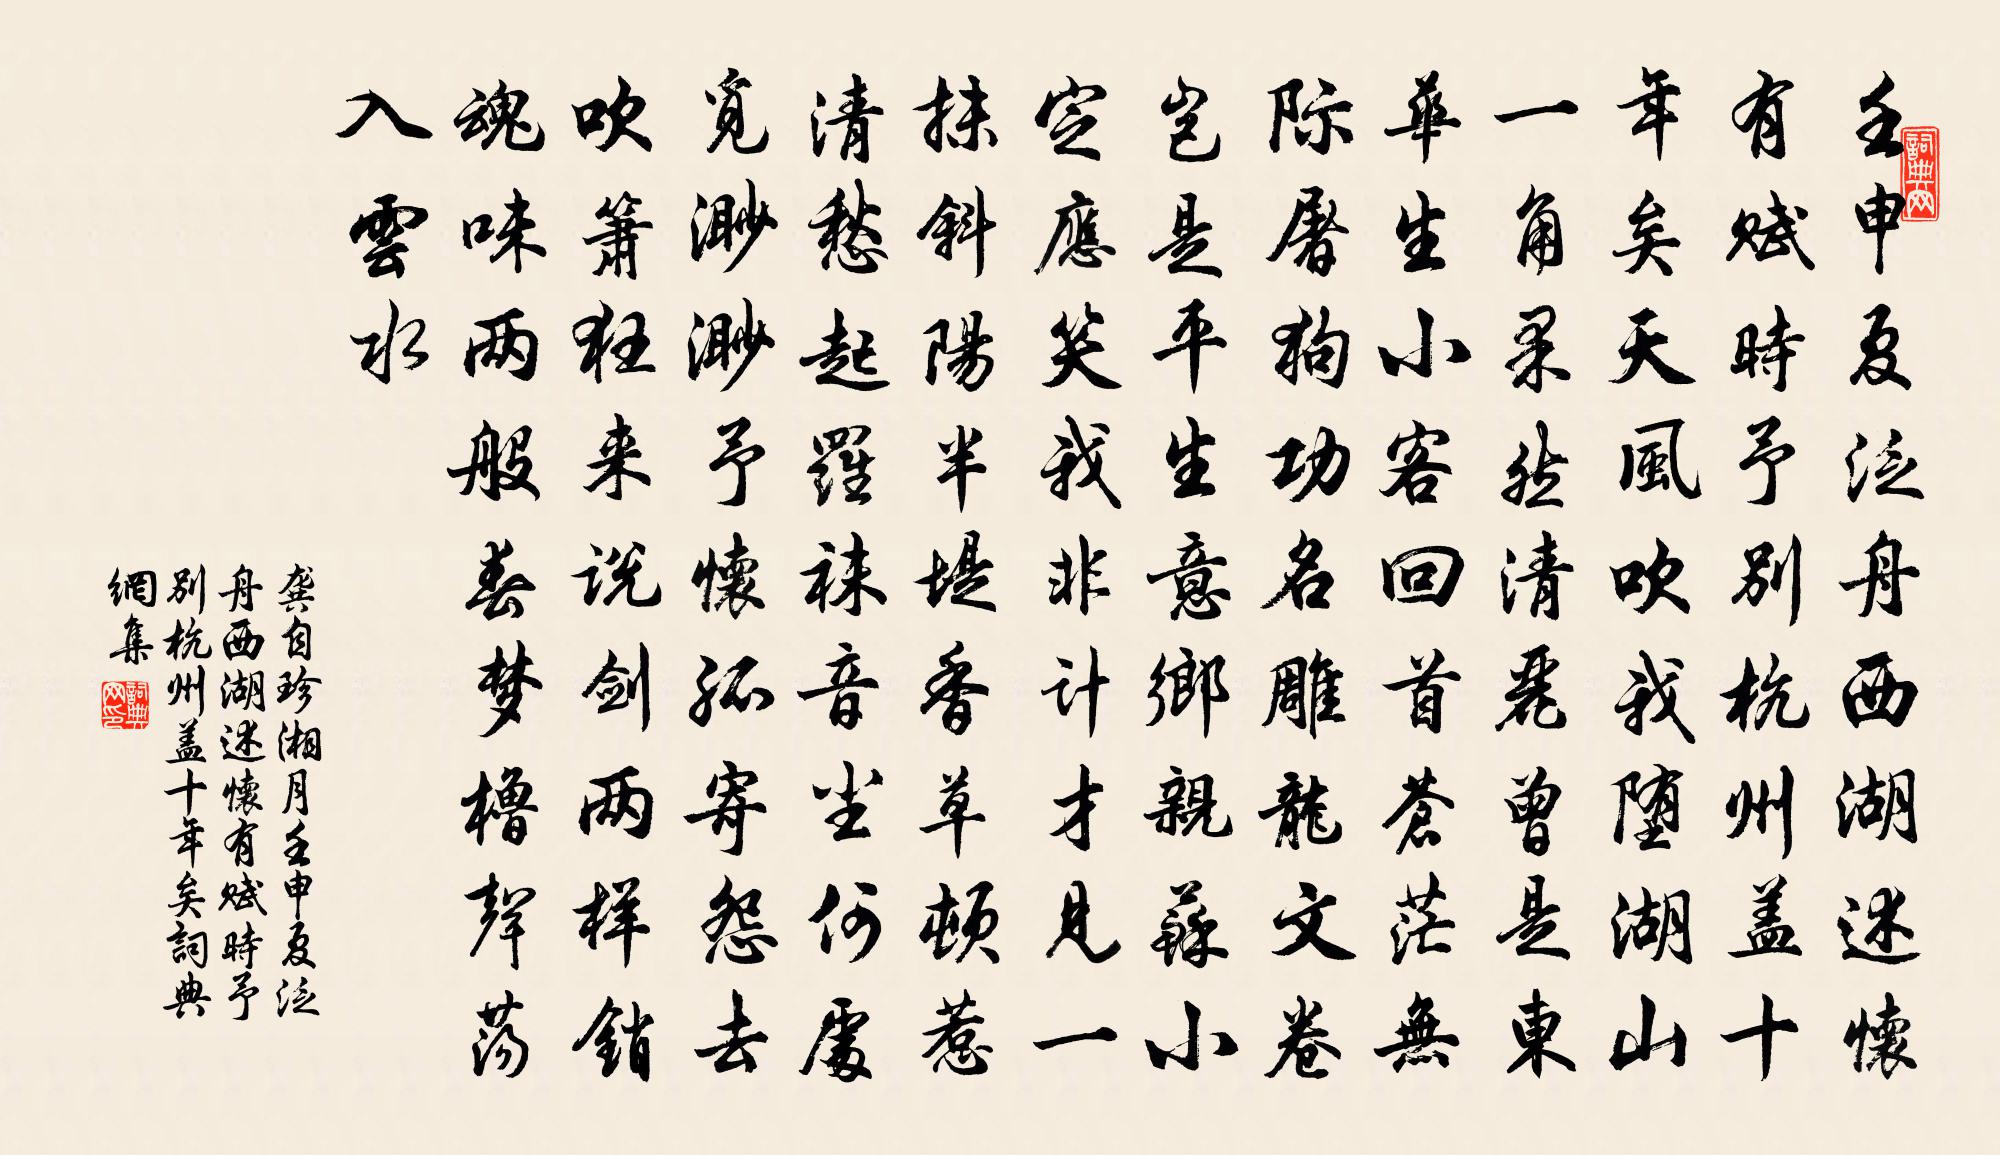 壬申夏泛舟西湖述懷
有賦時予別杭州盖十
年矣天風吹我堕湖山
一角果然清麗曾是東
華生小客回首蒼茫無
際屠狗功名雕龍文卷
豈是平生意鄉親蘇小
定應笑我非计才見一
抹斜陽半堤香草頓惹
清愁起羅襪音尘何處
覓渺渺予懷孤寄怨去
吹簫狂来说剑两样銷
魂味两般春梦櫓聲蕩
入雲水
龚自珍湘月壬申夏泛
舟西湖述懷有赋時予
别杭州盖十年矣詞典
網集
詞典网
詞典网印